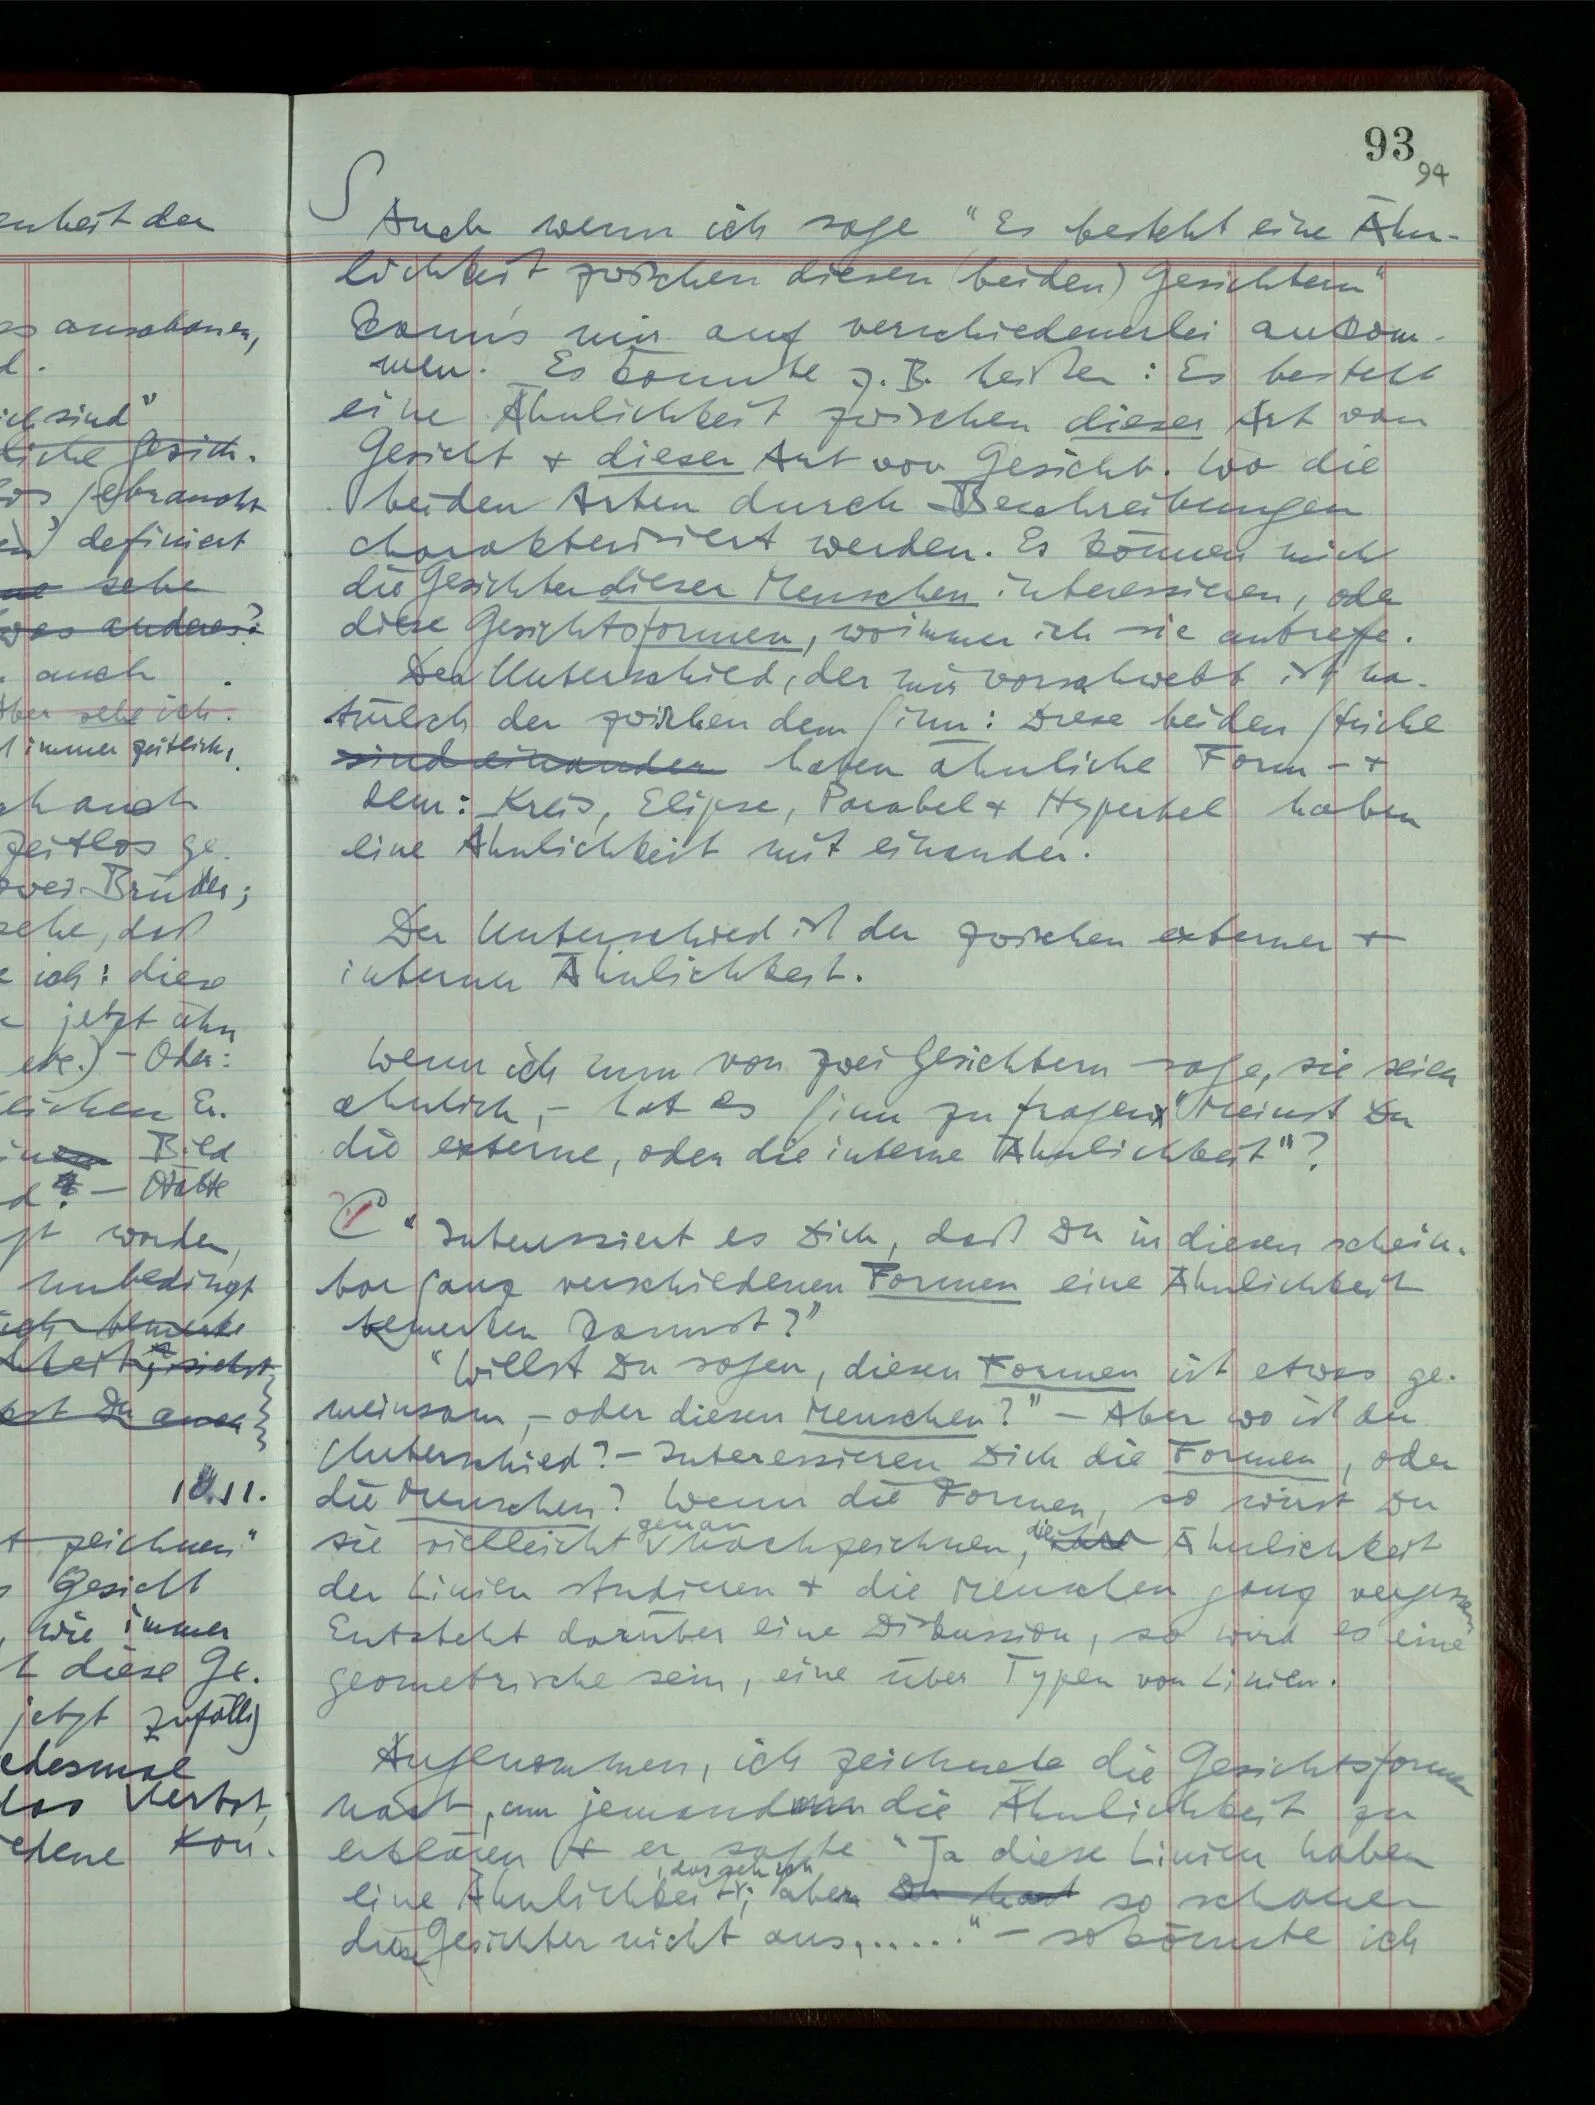 enheit der
anschauen,
ich sind"
liche Gesich-
gebraucht
definiert
sehe
was anderes?
auch
Aber sehe ich.
immer zeitlich,
auch
zeitlos ge-
zwei Brüder;
sehe, daß
ich: diese
jetzt ähn
etc.) – Oder:
lichen Er-
Bild
d? – Hätte
worden,
unbedingt
ich bemerke
sichst
Du
10.11.
zeichnen"
Gesicht
, wie immer
diese Ge-
jetzt zufällig
jedesmal
das Verbot,
Kon-
93
94
S Auch wenn ich sage "Es besteht eine Ähn-
lichkeit zwischen diesen (beiden) Gesichtern"
kann's mir auf verschiedenerlei ankom-
men. Es könnte z.B. heißen: Es besteht
eine Ähnlichkeit zwischen dieser Art von
Gesicht + dieser Art von Gesicht. Wo die
beiden Arten durch Beschreibungen
charakterisiert werden. Es können mich
die Gesichter dieser Menschen interessieren, oder
diese Gesichtsformen, woimmer ich sie antreffe.
Der Unterschied, der mir vorschwebt ist na-
türlich der zwischen dem Sinn: Diese beiden Stücke
sind einander haben ähnliche Form – +
dem: Kreis, Elipse, Parabel + Hyperbel haben
eine Ähnlichkeit mit einander.
Der Unterschied ist der zwischen externer +
interner Ähnlichkeit.
Wenn ich nun von zwei Gesichtern sage, sie seien
ähnlich, – hat es Sinn zu fragen: "Meinst Du
die externe, oder die interne Ähnlichkeit"?
"Interessiert es Dich, daß Du in diesen schein-
bar ganz verschiedenen Formen eine Ähnlichkeit
bemerken kannst?"
"Willst Du sagen, diesen Formen ist etwas ge-
meinsam, – oder diesen Menschen?" – Aber wo ist der
Unterschied? – Interessieren Dich die Formen, oder
die Menschen? Wenn die Formen, so wirst Du
sie vielleicht genau nachzeichnen, ihre die Ähnlichkeit
der Linien studieren + die Menschen ganz vergessen
Entsteht darüber eine Diskussion, so wird es eine
geometrische sein, eine über Typen von Linien.
Angenommen, ich zeichnete die Gesichtsformen
nach, um jemandem die Ähnlichkeit zu
erklären + er sagte "Ja diese Linien haben
eine Ähnlichkeit, das seh ich; aber Du hast so schauen
diese Gesichter nicht aus, ....." – so könnte ich